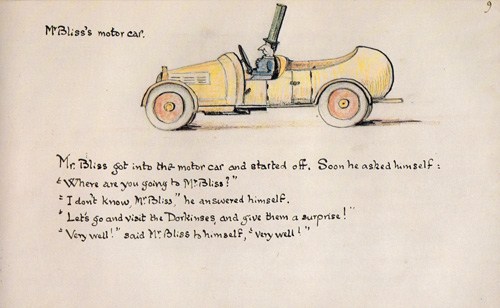 9
Mr Bliss's motor car.
Mr. Bliss got into the motor car and started off. Soon he asked himself:
"Where are you going to Mr Bliss?"
"I don't know, Mr. Bliss," he answered himself.
"Let's go and visit the Dorkinses, and give them a surprise!"
"Very well!" said Mr Bliss to himself, "very well!"